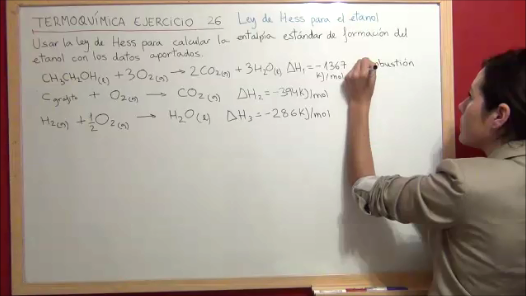 TERMOQUÍMICA EJERCICIO 26 Ley de Hess para el etanol
Usar la ley de Hess para calcular la entalpía estándar de formación del
etanol con los datos aportados.
CH₃CH₂OH(l) + 3O₂(g) → 2CO₂(g) + 3H₂O(l) ΔH₁ = -1367 KJ/mol
C grafito + O₂(g) → CO₂(g) ΔH₂ = -394 KJ/mol
H₂(g) + 1/2 O₂(g) → H₂O(l) ΔH₃ = -286 KJ/mol